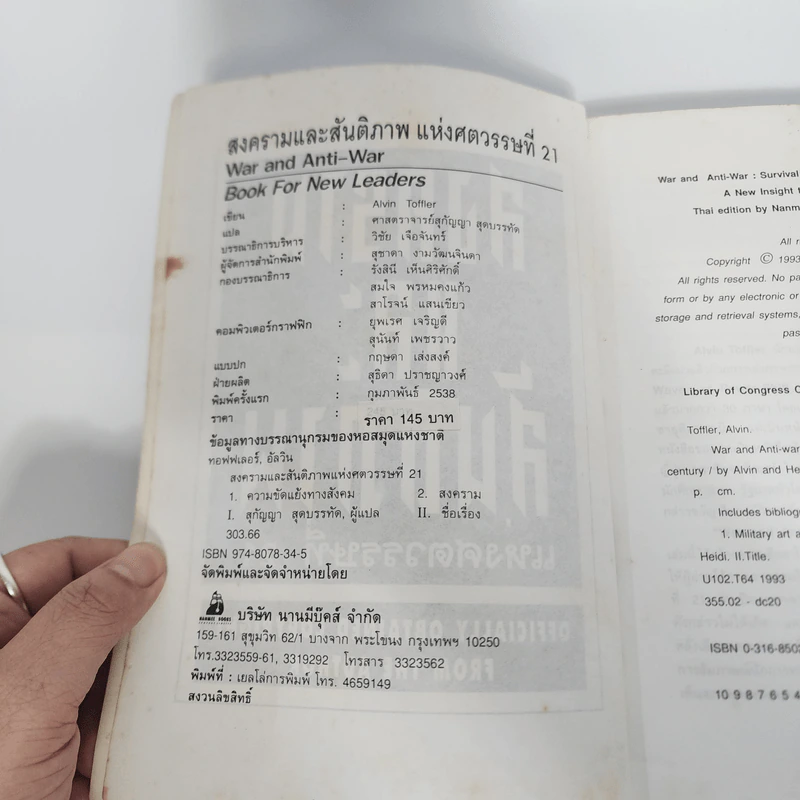 สงครามและสันติภาพ แห่งศตวรรษที่ 21
War and Anti-War
Book For New Leaders
เขียน : Alvin Toffler
แปล : ศาสตราจารย์สุกัญญา สุดบรรทัด
บรรณาธิการบริหาร : วิชัย เจือจันทร์
ผู้จัดการสำนักพิมพ์ : สุชาดา งามวัฒนจินดา
กองบรรณาธิการ : รังสินี เห็นศิริศักดิ์
สมใจ พรหมคงแก้ว
สาโรจน์ แสนเขียว
คอมพิวเตอร์กราฟฟิก : ยุพเรศ เจริญดี
สุนันท์ เพชรวาว
แบบปก : กฤษดา เส่งสงค์
ฝ่ายผลิต : สุธิดา ปราชญาวงศ์
พิมพ์ครั้งแรก : กุมภาพันธ์ 2538
ราคา : ราคา 145 บาท
ข้อมูลทางบรรณานุกรมของหอสมุดแห่งชาติ
ทอฟฟเลอร์, อัลวิน
สงครามและสันติภาพแห่งศตวรรษที่ 21
1. ความขัดแย้งทางสังคม 2. สงคราม
I. สุกัญญา สุดบรรทัด, ผู้แปล II. ชื่อเรื่อง
303.66
ISBN 974-8078-34-5
จัดพิมพ์และจัดจำหน่ายโดย
NANMEE BOOKS
บริษัท นานมีบุ๊คส์ จำกัด
159-161 สุขุมวิท 62/1 บางจาก พระโขนง กรุงเทพฯ 10250
โทร.3323559-61, 3319292 โทรสาร 3323562
พิมพ์ที่ : เยลโล่การพิมพ์ โทร. 4659149
สงวนลิขสิทธิ์
War and Anti-War : Survival
A New Insight
Thai edition by Nanm
All ri
Copyright © 1993
All rights reserved. No pa
form or by any electronic or
storage and retrieval systems,
pas
Library of Congress C
Toffler, Alvin.
War and Anti-war
century / by Alvin and He
p. cm.
Includes bibliog
1. Military art a
Heidi. II.Title.
U102.T64 1993
355.02 - dc20
ISBN 0-316-8502
10 9 8 7 6 5 4